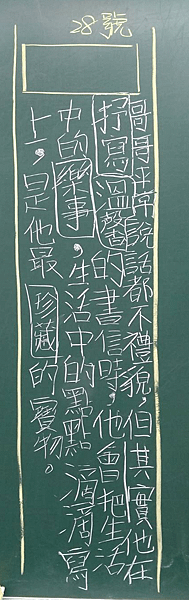 28號
哥哥平常說話都不禮貌，但其實他在
抒寫溫馨的書信時，他會把生活
中的樂事，生活中的點點滴滴寫
上，是他最珍藏的寶物。